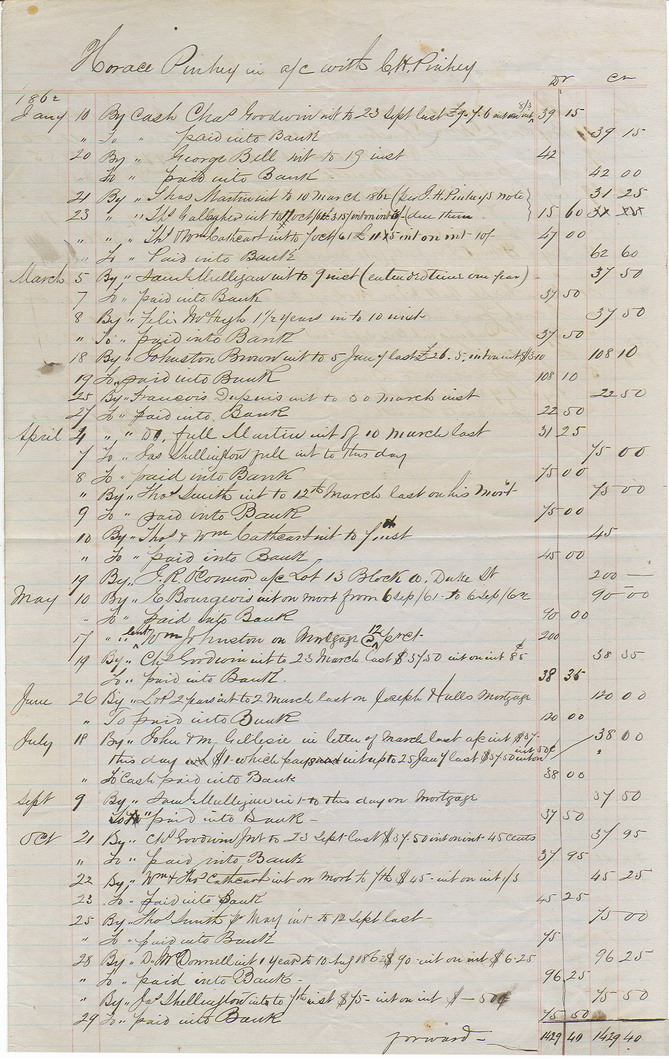 Horace Pinhey in a/c with C.H. Pinhey
Dr Cr
1862
Jany 10 By Cash Chas Goodwin int to 23 Sept last £9.7.6 int on int 8/3 39 15
" To " paid into Bank 39 15
20 By " George Bell int to 19 inst 42
To " paid into Bank 42 00
21 By " Thos Martin int to 10 March 1862 (per J.H. Pinhey's note 31 25
23 " " Thos Gallagher int to 1 Oct/61 3.15/ int on int due them 15 60
" " " Thos & Wm Cathcart int to 7 Oct/61 £ 11.5 int on int 10/- 47 00
To " Paid into Bank 62 60
March 5 By " Saml Mulligan int to 9 inst (extended time one year) 37 50
7 To " paid into Bank 37 50
8 By " Felix McHugh 1 1/2 years in to 10 inst 37 50
" To " paid into Bank 37 50
18 By " Johnston Brown int to 5 Jany last £26.5. int on int $3.10 108 10
19 To " paid into Bank 108 10
25 By " Francois Dupuis int to 30 March inst 22 50
27 To " paid into Bank 22 50
April 4 " " Do. full Martin int of 10 March last 31 25
7 To " Jas Shillington full int to this day 75 00
8 To " paid into Bank 75 00
" By " Thos Smith int to 12th March last on his Mort 75 00
9 To " paid into Bank 75 00
10 By " Thos & Wm Cathcart int to 7 inst 45
" To " paid into Bank 45 00
19 By " G.R. O'Connor a/c Lot 13 Block O. Duke St 200 —
May 10 By " E Bourgeois int on mort from 6 Sep/61 - to 6 Sep/62 90 00
" To " paid into Bank 90 00
17 " " lent Wm Johnston on Mortgage @ 12 prct - 200
19 By " Chs Goodwin int to 23 March last $37.50 int on int 85¢ 38 35
To " paid into Bank. 38 35
June 26 By " 2 years int to 2 March last on Joseph Hulls Mortgage 120 00
" To paid into Bank 120 00
July 18 By " John & M. Gillesie in letter of March last a/c int $37- 38 00
this day $1. which pays int up to 25 Jany last $37.50 int on int 50¢
" To Cash paid into Bank 38 00
Sept 9 By " Saml Mulligan int to this day on Mortgage 37 50
To " paid into Bank - 37 50
Oct 21 By " Chs Goodwin Int to 23 Sept last $37.50 int on int 45 cents 37 95
" To " paid into Bank 37 95
22 By " Wm & Thos Cathcart int on Mort to 7th $45 - int on int 1/3 45 25
23 To " Paid into Bank 45 25
25 By " Thos Smith int to 12 Sept last - 75 00
" To " paid into Bank 75
28 By " D. McDonnell int 1 year to 10 Aug 1862 $90 - int on int $6.25 96 25
" To " paid into Bank - 96 25
" By " Jas Shillington into to 7th inst $75 - int on int $ — 50¢ 75 50
29 To " paid into Bank 75 50
forward - 1429 40 1429 40